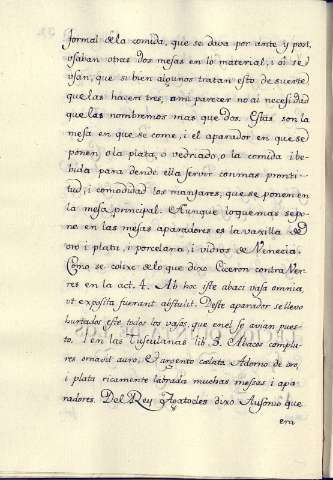 formal de la comida, que se dava por ante y post,
osaban otras dos mesas en lo material, i oi se
usan, que si bien algunos tratan esto de suerte
que las hacen tres, a mi parecer no ai necesidad
que las nombremos mas que dos. Estas son la
mesa en que se come, i el aparador en que se
ponen o la plata, o vedriado, o la comida i be-
bida para dende ella servir con mas promti-
tud, i comodidad los manjares, que se ponen en
la mesa principal. Aunque lo que mas se po-
ne en las mesas aparadores es la vaxilla de
oro i plata, i porcelana, i vidros de Venecia.
Como se colixe de lo que dixo Ciceron contra Ver-
res en la act. 4. Ab hoc iste abaci vasa omnia,
ut exposita fuerunt abstulit. Deste aparador se llevo
hurtados este todos los vasos, que en el se avian pues-
to. I en las Tusculanas lib. 5. Abacos complu-
res ornavit auro, & argento caelata Adorno de oro,
i plata ricamente labrada muchas messas i apa-
radores. Del Rey Agatocles dixo Ausonio que
era